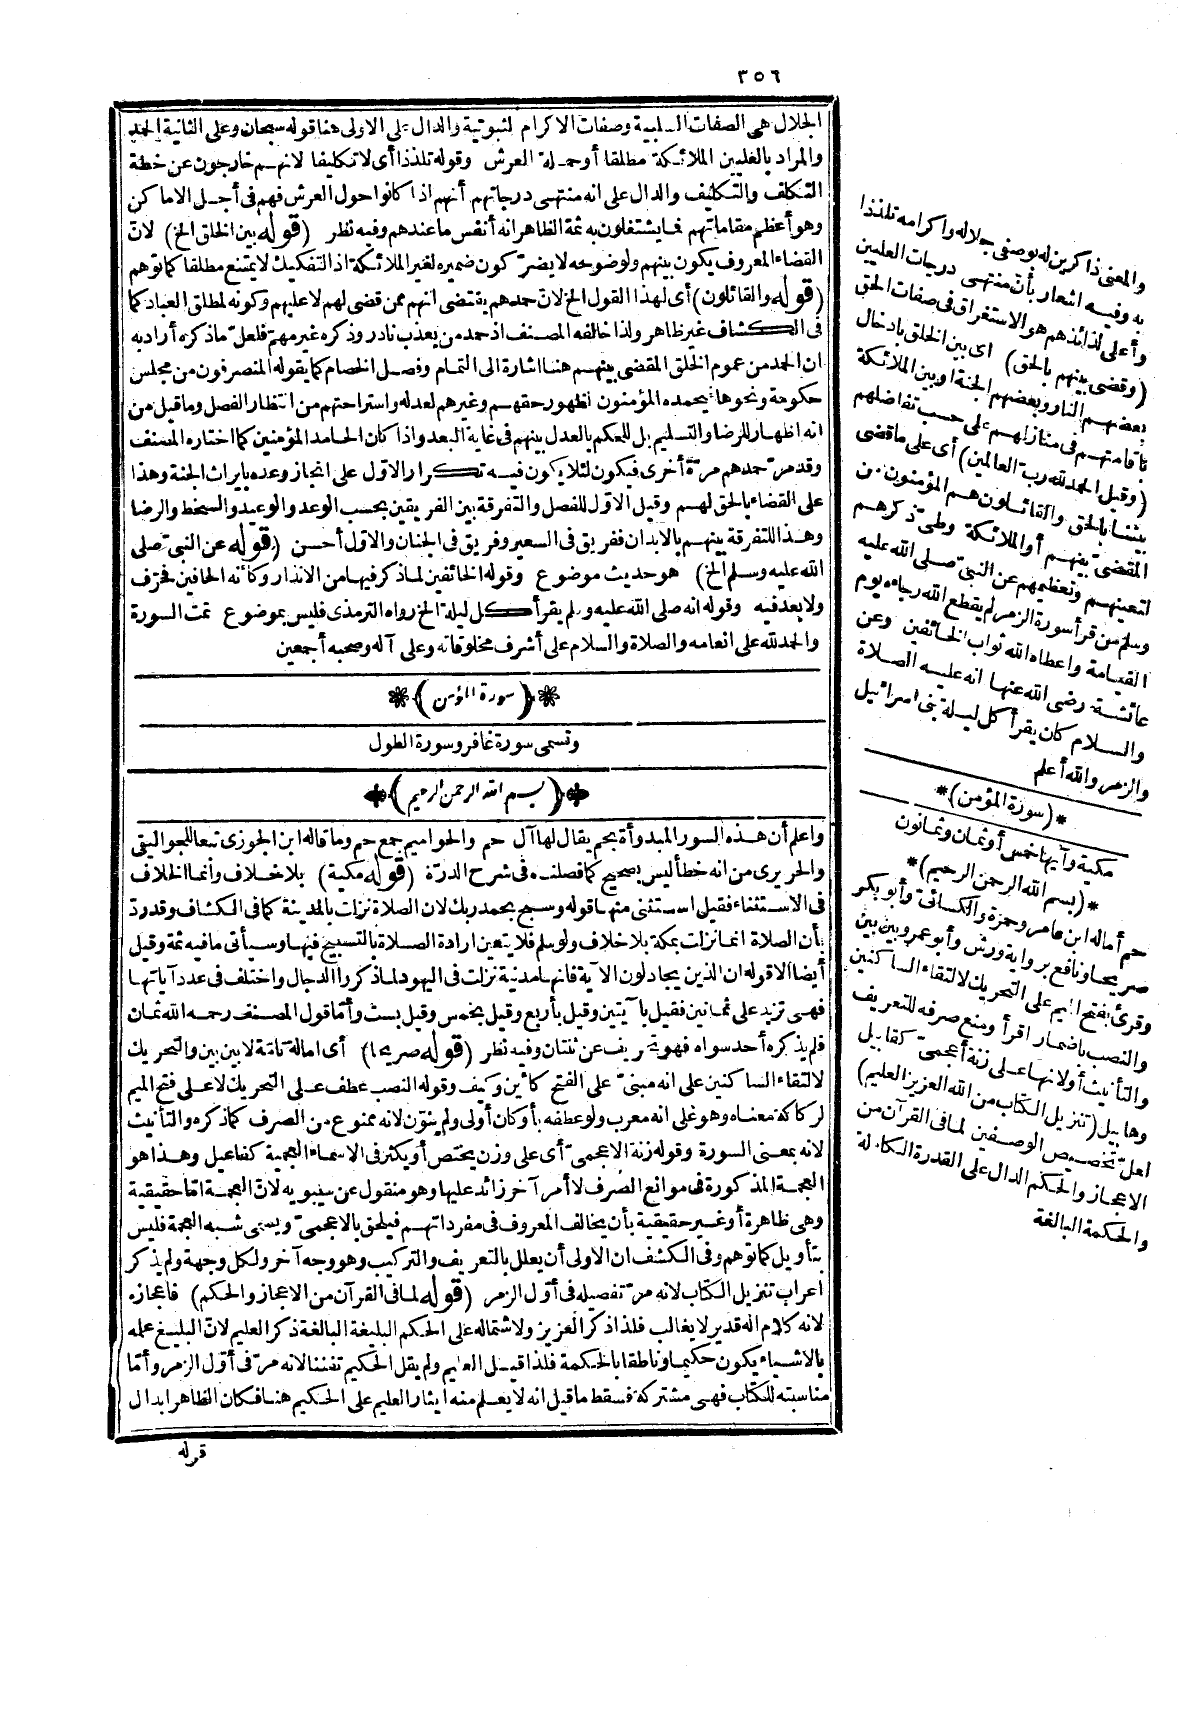 ٣٥٦
الجلال هي الصفات السلبية وصفات الاكرام لثبوتية والدال على الاولى هنا قوله سبحان وعلى الثانية الحمد
والمراد بالعليين الملائكة مطلقا أو حملة العرش وقوله تلذذا أى لا تكليفا لانهم خارجون عن خطة
التكلف والتكليف والدال على انه منتهى درجاتهم أنهم اذا كانوا حول العرش فهم فى أجل الاماكن
وهو أعظم مقاماتهم فما يشتغلون به ثمة الظاهر انه أنفس ما عندهم وفيه نظر (قوله بين الخلق الخ) لان
القضاء المعروف يكون بينهم ولوضوحه لا يضر كون ضميره لغير الملائكة اذ التفكيك لا يمتنع مطلقا كما توهم
(قوله والقائلون) أى لهذا القول الخ لان حمدهم يقتضى انهم ممن قضى لهم لا عليهم وكونه لمطلق العباد كما
فى الكشاف غير ظاهر ولذا خالفه المصنف اذ حمد من يعذب نادر وذكره غير مهم فلعل ما ذكره أراد به
ان الحمد من عموم الخلق المقضى بينهم هنا اشارة الى التمام وفصل الخصام كما يقوله المنصرفون من مجلس
حكومة ونحوها يحمده المؤمنون لظهور حقهم وغيرهم لعدله واستراحتهم من انتظار الفصل وما قيل من
انه اظهار للرضا والتسليم بل للحكم بالعدل بينهم فى غاية البعد واذا كان الحامد المؤمنين كما اختاره المصنف
وقد مر حمدهم مرة أخرى فيكون لئلا يكون فيه تكرار الاول على انجاز وعده بايراث الجنة وهذا
على القضاء بالحق لهم وقيل الاول للفصل والتفرقة بين الفريقين بحسب الوعد والوعيد والسخط والرضا
وهذا للتفرقة بينهم بالابدان ففريق فى السعير وفريق فى الجنان والاول أحسن (قوله عن النبى صلى
الله عليه وسلم الخ) هو حديث موضوع وقوله الخائفين لما ذكر فيها من الانذار وكأنه الحافين فحرف
ولا بعد فيه وقوله انه صلى الله عليه وسلم يقرأ كل ليلة الخ رواه الترمذى فليس بموضوع تمت السورة
والحمد لله على انعامه والصلاة والسلام على أشرف مخلوقاته وعلى آله وصحبه أجمعين
(سورة المؤمن)
وتسمى سورة غافر وسورة الطول
(بسم الله الرحمن الرحيم)
واعلم أن هذه السور المبدوأة بحم يقال لها آل حم والحواميم جمع حم وما قاله ابن الجوزى تبعا للجواليقى
والحريرى من انه خطأ ليس بصحيح كما فصلناه فى شرح الدرة (قوله مكية) بلا خلاف وانما الخلاف
فى الاستثناء فقيل استثنى منها قوله وسبح بحمد ربك لان الصلاة نزلت بالمدينة كما فى الكشاف وقد رد
بأن الصلاة انما نزلت بمكة بلا خلاف ولو سلم فلا يتعين ارادة الصلاة بالتسبيح فيها وسيأتى ما فيه ثمة وقيل
أيضا الا قوله ان الذين يجادلون الآية فانها مدنية نزلت فى اليهود لما ذكروا الدجال واختلف فى عدد آياتها
فهى تزيد على ثمانين فقيل بآيتين وقيل بأربع وقيل بخمس وقيل بست وأما قول المصنف رحمه الله ثمان
فلم يذكره أحد سواه فهو تحريف عن ثنتان وفيه نظر (قوله صريحا) أى امالة تامة لا بين بين والتحريك
لالتقاء الساكنين على انه مبنى على الفتح كأين وكيف وقوله النصب عطف على التحريك لا على فتح الميم
لركاكة معناه وهو على انه معرب ولو عطفه بأو كان أولى ولم ينون لانه ممنوع من الصرف كما ذكره والتأنيث
لانه بمعنى السورة وقوله زنة الاعجمى أى على وزن يختص أو يكثر فى الاسماء العجمية كفاعيل وهذا هو
العجمة المذكورة فى موانع الصرف لا أمر آخر زائد عليها وهو منقول عن سيبويه لان العجمة اما حقيقية
وهى ظاهرة أو غير حقيقية بأن يخالف المعروف فى مفرداتهم فيلحق بالاعجمى ويسمى شبه العجمة فليس
بتأويل كما توهم وفى الكشف ان الاولى أن يعلل بالتعريف والتركيب وهو وجه آخر ولكل وجهة ولم يذكر
اعراب تنزيل الكتاب لانه مر تفصيله فى أول الزمر (قوله لما فى القرآن من الاعجاز والحكم) فاعجازه
لانه كلام اله قدير لا يغالب فلذا ذكر العزيز ولاشتماله على الحكم البليغة البالغة ذكر العليم لان البليغ علمه
بالاشياء يكون حكيما وناطقا بالحكمة فلذا قيل العليم ولم يقل الحكيم تفننا لانه مر فى أول الزمر وأما
مناسبته للكتاب فهى مشتركة فسقط ما قيل انه لا يعلم منه ايثار العليم على الحكيم هنا فكان الظاهر ابدال
قوله
والمعنى ذاكرين له بوصفى جلاله واكرامه تلذذا
به وفيه اشعار بأن منتهى درجات العليين
وأعلى لذائذهم هو الاستغراق فى صفات الحق
(وقضى بينهم بالحق) اى بين الخلق بادخال
بعضهم النار وبعضهم الجنة او بين الملائكة
باقامتهم فى منازلهم على حسب تفاضلهم
(وقيل الحمد لله رب العالمين) أى على ما قضى
بيننا بالحق والقائلون هم المؤمنون من
المقضى بينهم أو الملائكة وطى ذكرهم
لتعينهم وتعظيمهم عن النبى صلى الله عليه
وسلم من قرأ سورة الزمر لم يقطع الله رجاءه يوم
القيامة واعطاه الله ثواب الخائفين وعن
عائشة رضى الله عنها انه عليه الصلاة
والسلام كان يقرأ كل ليلة بنى اسرائيل
والزمر والله أعلم
*(سورة المؤمن)*
مكية وآيها خمس أو ثمان وثمانون
*(بسم الله الرحمن الرحيم)*
حم أماله ابن عامر وحمزة والكسائى وأبو بكر
صريحا ونافع برواية ورش وأبو عمرو بين بين
وقرئ بفتح الميم على التحريك لالتقاء الساكنين
والنصب باضمار اقرأ ومنع صرفه للتعريف
والتأنيث أو لانها على زنة أعجمى كقابيل
وهابيل (تنزيل الكتاب من الله العزيز العليم)
لعل تخصيص الوصفين لما فى القرآن من
الاعجاز والحكم الدال على القدرة الكاملة
والحكمة البالغة